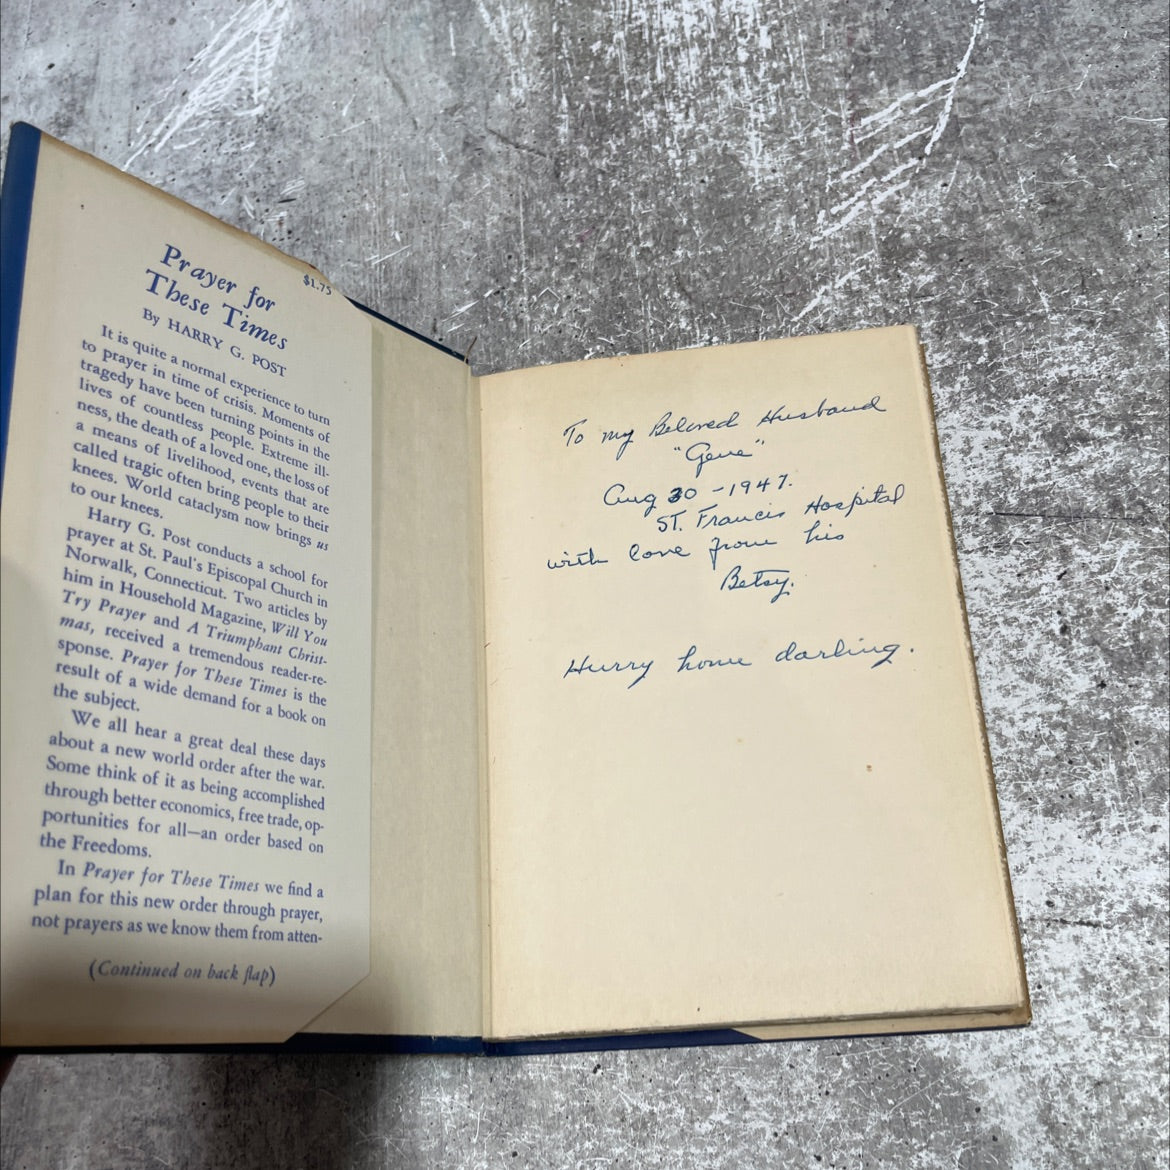 $1.75
Prayer for
These Times
By HARRY G. POST
It is quite a normal experience to turn
to prayer in time of crisis. Moments of
tragedy have been turning points in the
lives of countless people. Extreme ill-
ness, the death of a loved one, the loss of
a means of livelihood, events that are
called tragic often bring people to their
knees. World cataclysm now brings us
to our knees.
Harry G. Post conducts a school for
prayer at St. Paul's Episcopal Church in
Norwalk, Connecticut. Two articles by
him in Household Magazine, Will You
Try Prayer and A Triumphant Christ-
mas, received a tremendous reader-re-
sponse. Prayer for These Times is the
result of a wide demand for a book on
the subject.
We all hear a great deal these days
about a new world order after the war.
Some think of it as being accomplished
through better economics, free trade, op-
portunities for all—an order based on
the Freedoms.
In Prayer for These Times we find a
plan for this new order through prayer,
not prayers as we know them from atten-
(Continued on back flap)
To my Beloved Husband
"Gene"
Aug 30 - 1947.
ST. Francis Hospital
with love from his
Betsy.
Hurry home darling.